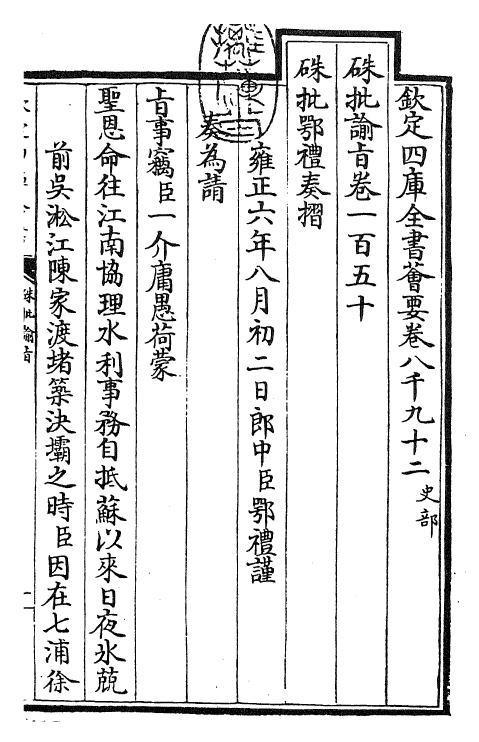 欽定四庫全書薈要卷八千九十二 史部
硃批諭旨卷一百五十
硃批鄂禮奏摺
雍正六年八月初二日郎中臣鄂禮謹
奏為請
旨事竊臣一介庸愚荷蒙
聖恩命往江南協理水利事務自抵蘇以來日夜氷兢
前吳淞江陳家渡堵築決壩之時臣因在七浦徐
硃批諭旨